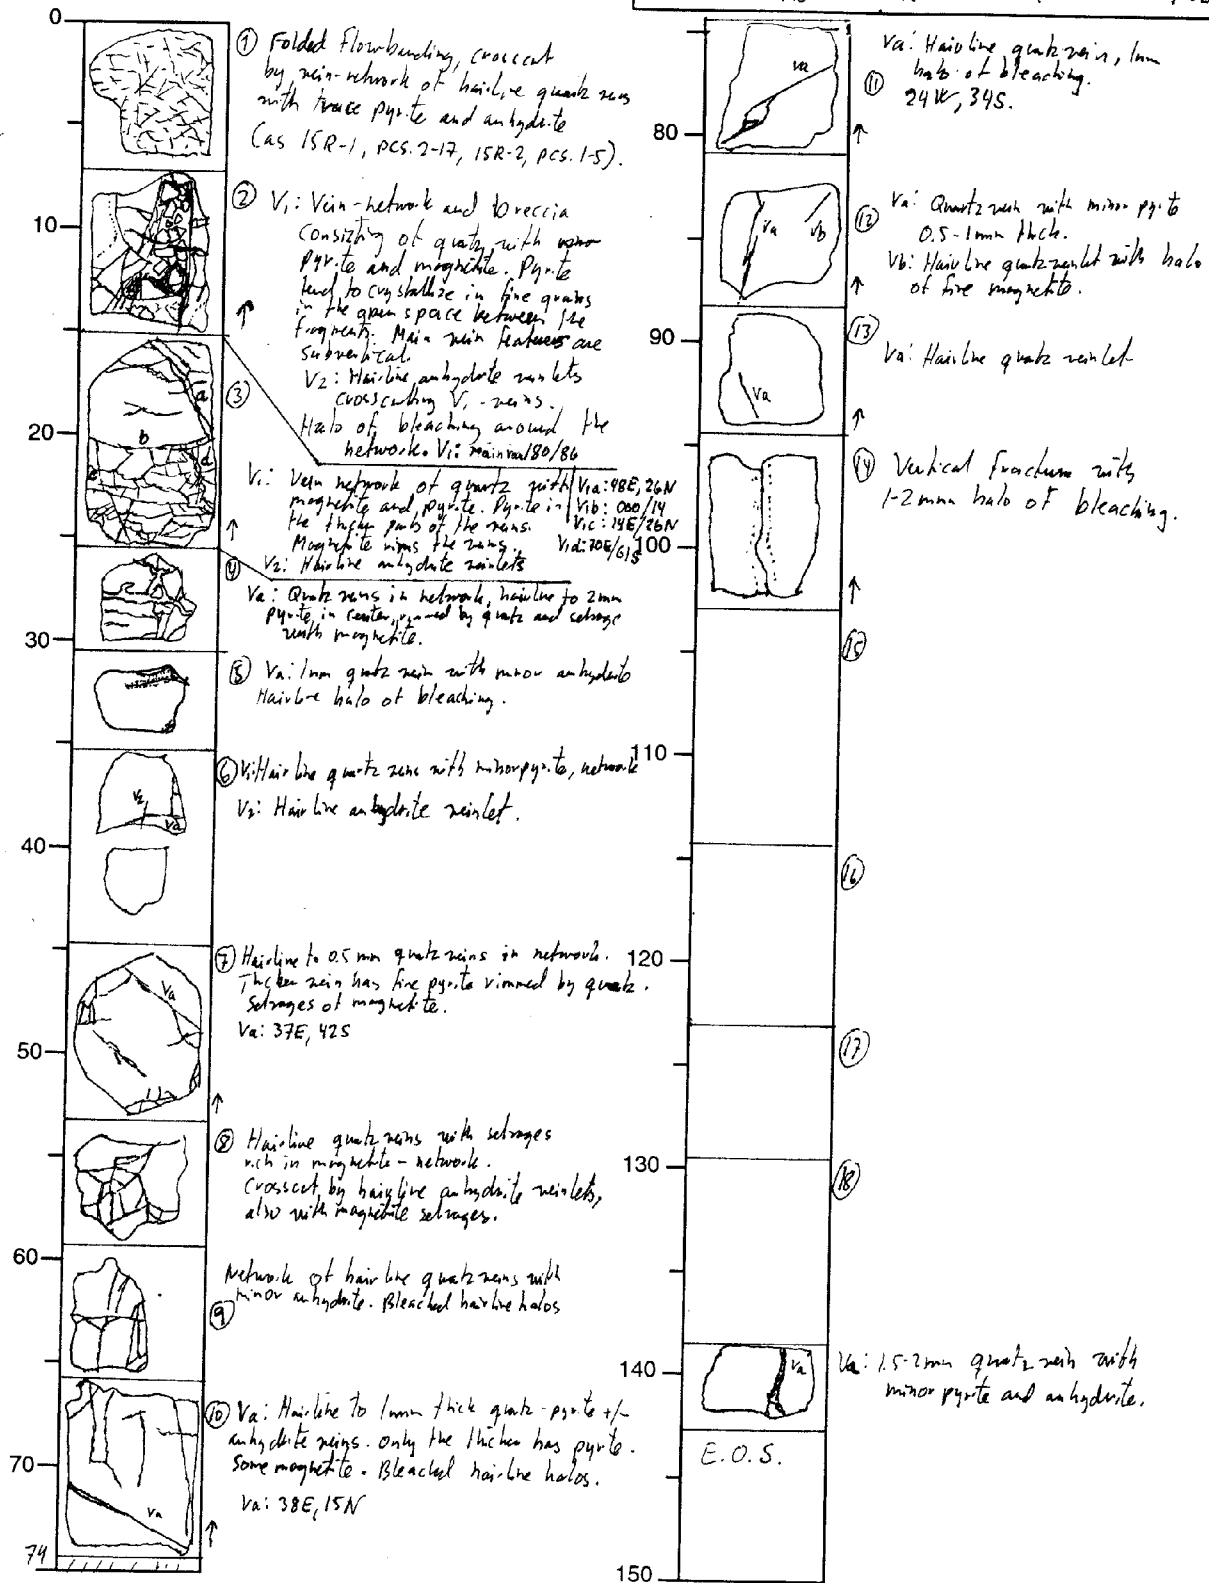 0
① Folded flowbanding, crosscut
by vein-network of hairline quartz veins
with trace pyrite and anhydrite
(as 15R-1, pcs. 2-17, 15R-2, pcs. 1-5).
10
② V1: Vein-network and breccia
consisting of quatz with minor
pyrite and magnetite. Pyrite
tend to crystallize in fine grains
in the open space between the
fragments. Main vein features are
subvertical.
V2: Hairline anhydrite veinlets
crosscutting V1-veins.
Halo of bleaching around the
network. V1: main vein 180/86
③
a
b
c
d
20
V1: Vein network of quartz with
magnetite and pyrite. Pyrite in
the thicker parts of the veins.
Magnetite rims the veins.
V2: Hairline anhydrite veinlets
V1a: 98E, 26N
V1b: 000/14
V1c: 14E/26N
V1d: 70E/61S
④
Va: Quatz veins in network, hairline to 2mm
pyrite in center, rimmed by quartz and selvage
with magnetite.
30
⑤ Va: 1mm quatz vein with minor anhydrite
Hairline halo of bleaching.
⑥ V1: Hairline quartz veins with minor pyrite, network
V2: Hairline anhydrite veinlet.
V2
Va
40
⑦ Hairline to 0.5 mm quatz veins in network.
Thicker vein has fine pyrite rimmed by quatz.
Selvages of magnetite.
Va: 37E, 42S
Va
50
⑧ Hairline quatz veins with selvages
rich in magnetite - network.
Crosscut by hairline anhydrite veinlets,
also with magnetite selvages.
60
Network of hairline quatz veins with
minor anhydrite. Bleached hairline halos
⑨
⑩ Va: Hairline to 1mm thick quatz-pyrite +/-
anhydrite veins. Only the thicker has pyrite.
Some magnetite. Bleached hairline halos.
Va: 38E, 15N
70
Va
74
Va
Va: Hairline quatz vein, 1mm
halo of bleaching.
⑪
24W, 34S.
80
Va: Quartz vein with minor pyrite
⑫
0.5-1mm thick.
Vb: Hairline quatz veinlet with halo
of fine magnetite.
Va
Vb
90
⑬
Va: Hairline quatz veinlet
Va
⑭ Vertical fracture with
1-2mm halo of bleaching.
100
⑮
110
⑯
120
⑰
130
⑱
140
Va
Va: 1.5-2mm quatz vein with
minor pyrite and anhydrite.
E.O.S.
150